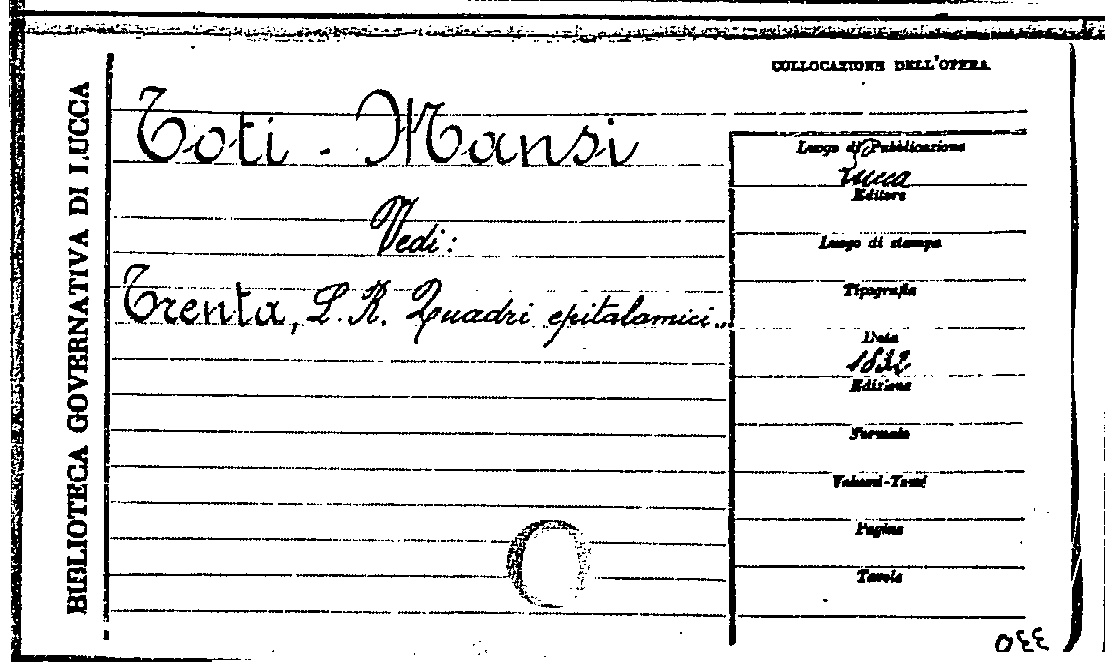 BIBLIOTECA GOVERNATIVA DI LUCCA
COLLOCAZIONE DELL'OPERA
Toti - Mansi
Vedi:
Trenta, L. R. Quadri epitalamici...
Luogo di Pubblicazione
Lucca
Editore
Luogo di stampa
Tipografia
Data
1832
Edizione
Formato
Volumi-Tomi
Pagine
Tavole
330